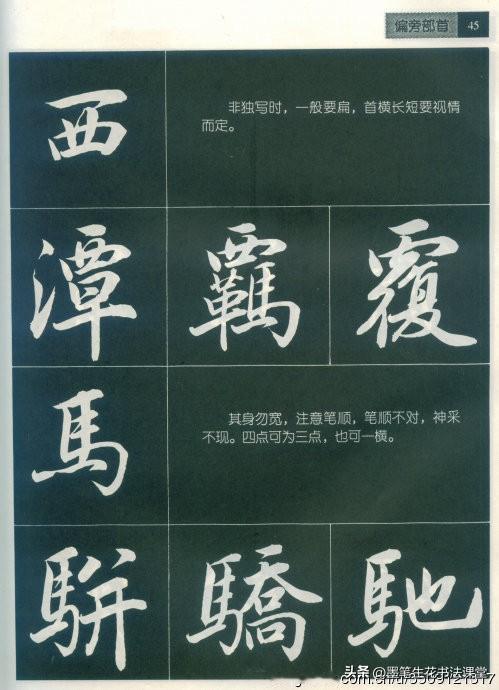 偏旁部首 45
西
非独写时，一般要扁，首横长短要视情
而定。
潭 羈 覆
馬
其身勿宽，注意笔顺，笔顺不对，神采
不现。四点可为三点，也可一横。
駢 驕 馳
头条@墨笔生花书法课堂